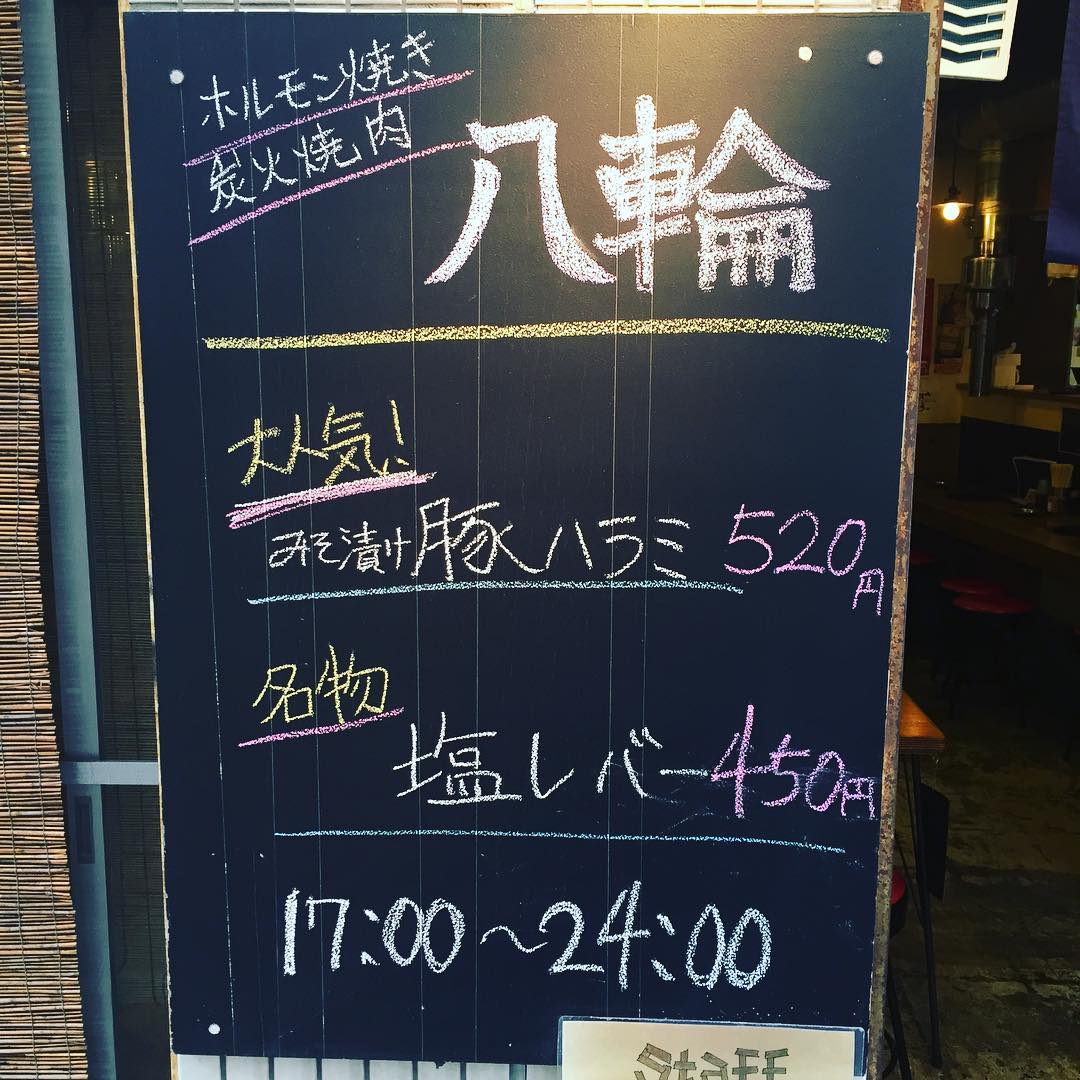 ホルモン焼き
炭火焼肉
八輪
大人気!
みそ漬け豚ハラミ 520円
名物
塩レバー 450円
17:00～24:00
Staff